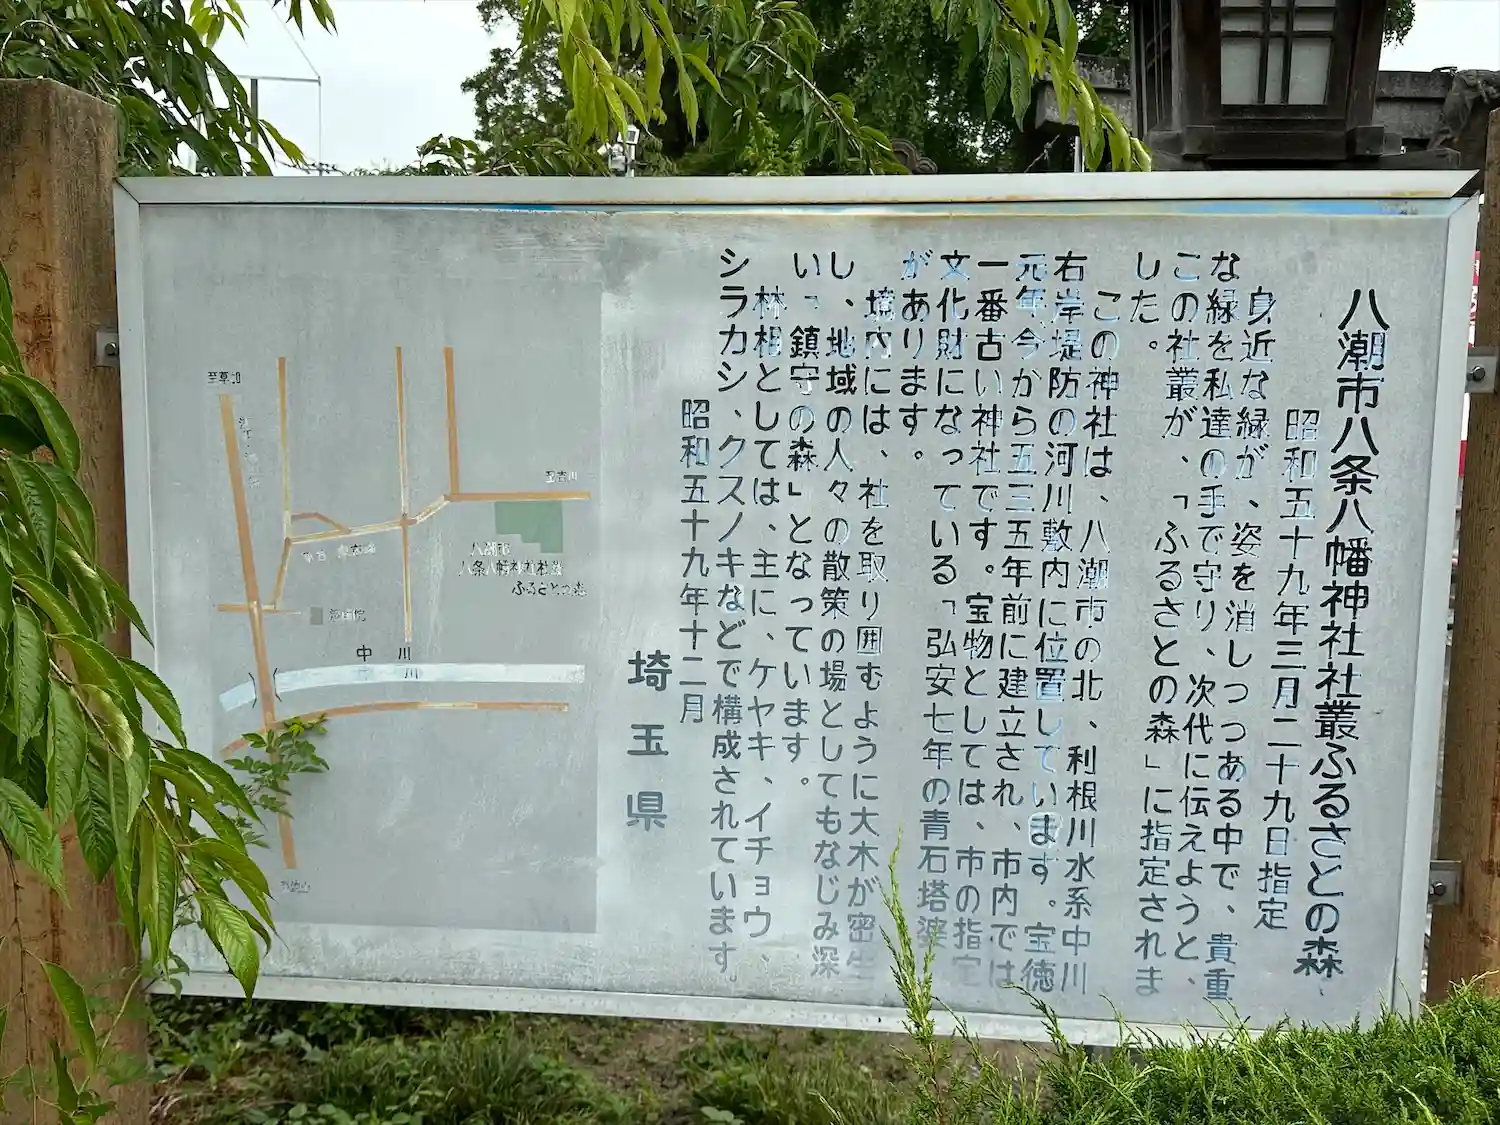 八潮市八条八幡神社社叢ふるさとの森
昭和五十九年三月二十九日指定
身近な緑が、姿を消しつつある中で、貴重
な緑を私達の手で守り、次代に伝えようと、
この社叢が、「ふるさとの森」に指定されま
した。
この神社は、八潮市の北、利根川水系中川
右岸堤防の河川敷内に位置しています。宝徳
元年、今から五三五年前に建立され、市内では
一番古い神社です。宝物としては、市の指定
文化財になっている「弘安七年の青石塔婆」
があります。
境内には、社を取り囲むように大木が密生
し、地域の人々の散策の場としてもなじみ深
い「鎮守の森」となっています。
林相としては、主に、ケヤキ、イチョウ、
シラカシ、クスノキなどで構成されています。
昭和五十九年十二月
埼玉県
至草加
至吉川
八潮市
八条八幡神社社叢
ふるさとの森
中川